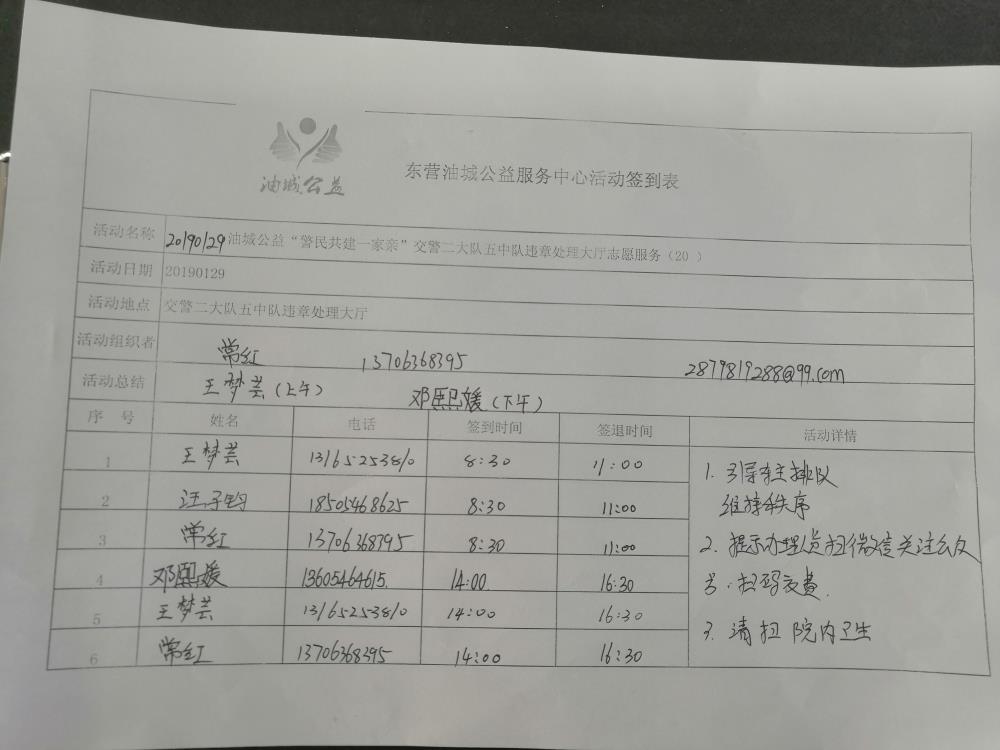 油城公益
东营油城公益服务中心活动签到表
活动名称 20190129油城公益“警民共建一家亲”交警二大队五中队违章处理大厅志愿服务（20 ）
活动日期 20190129
活动地点 交警二大队五中队违章处理大厅
活动组织者 常红 13706368395 2879819288@qq.com
活动总结 王梦芸（上午） 邓熙媛（下午）
序 号 姓名 电话 签到时间 签退时间 活动详情
1 王梦芸 13165253810 8:30 11:00
2 汪子昀 18505468625 8:30 11:00
3 常红 13706368395 8:30 11:00
4 邓熙媛 13605464615. 14:00 16:30
5 王梦芸 13165253810 14:00 16:30
6 常红 13706368395 14:00 16:30
1. 引导车主排队
维持秩序
2. 提示办理人员扫微信关注公众
号.扫码交费.
3. 请扫 院内卫生